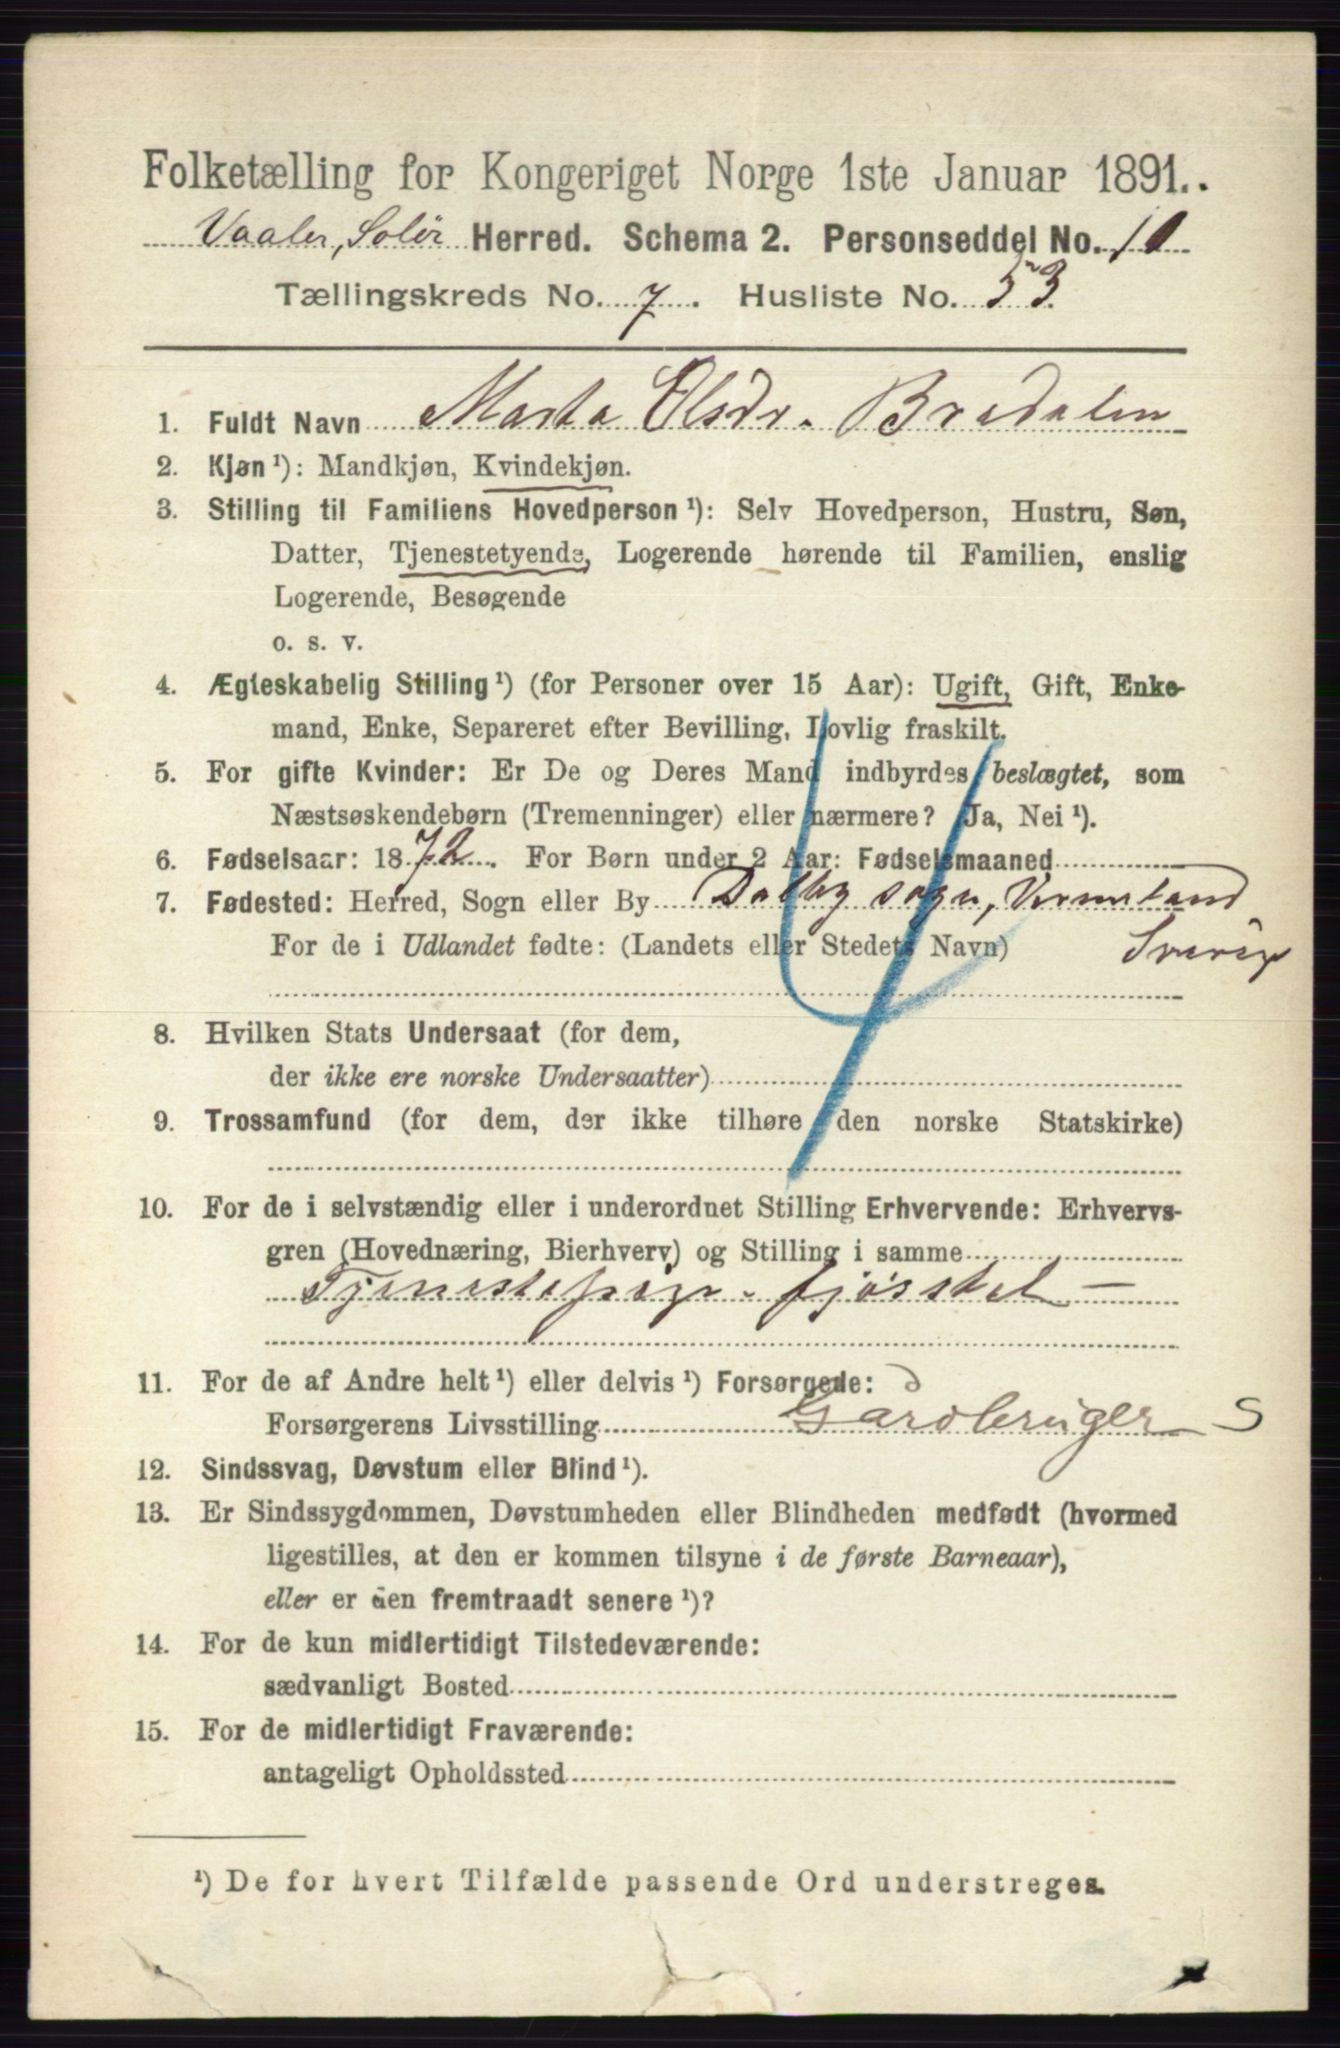 Folketælling for Kongeriget Norge 1ste Januar 1891.
Vaaler, Solør Herred. Schema 2. Personseddel No. 10
Tællingskreds No. 7. Husliste No. 53
1. Fuldt Navn Marta Olsdr. Bredalen
2. Kjøn ¹): Mandkjøn, Kvindekjøn.
3. Stilling til Familiens Hovedperson ¹): Selv Hovedperson, Hustru, Søn,
Datter, Tjenestetyende, Logerende hørende til Familien, enslig
Logerende, Besøgende
o. s. v.
4. Ægteskabelig Stilling ¹) (for Personer over 15 Aar): Ugift, Gift, Enke-
mand, Enke, Separeret efter Bevilling, Lovlig fraskilt.
5. For gifte Kvinder: Er De og Deres Mand indbyrdes beslægtet, som
Næstsøskendebørn (Tremenninger) eller nærmere? Ja, Nei ¹).
6. Fødselsaar: 1872. For Børn under 2 Aar: Fødselsmaaned
7. Fødested: Herred, Sogn eller By Dalby sogn, Vermland
For de i Udlandet fødte: (Landets eller Stedets Navn) Sverige
8. Hvilken Stats Undersaat (for dem,
der ikke ere norske Undersaatter)
9. Trossamfund (for dem, der ikke tilhøre den norske Statskirke)
4
10. For de i selvstændig eller i underordnet Stilling Erhvervende: Erhvervs-
gren (Hovednæring, Bierhverv) og Stilling i samme
Tjenestepige. fjøsstel —
11. For de af Andre helt ¹) eller delvis ¹) Forsørgede:
Forsørgerens Livsstilling Gardbruger S
12. Sindssvag, Døvstum eller Blind ¹).
13. Er Sindssygdommen, Døvstumheden eller Blindheden medfødt (hvormed
ligestilles, at den er kommen tilsyne i de første Barneaar),
eller er den fremtraadt senere ¹)?
14. For de kun midlertidigt Tilstedeværende:
sædvanligt Bosted
15. For de midlertidigt Fraværende:
antageligt Opholdssted
¹) De for hvert Tilfælde passende Ord understreges.